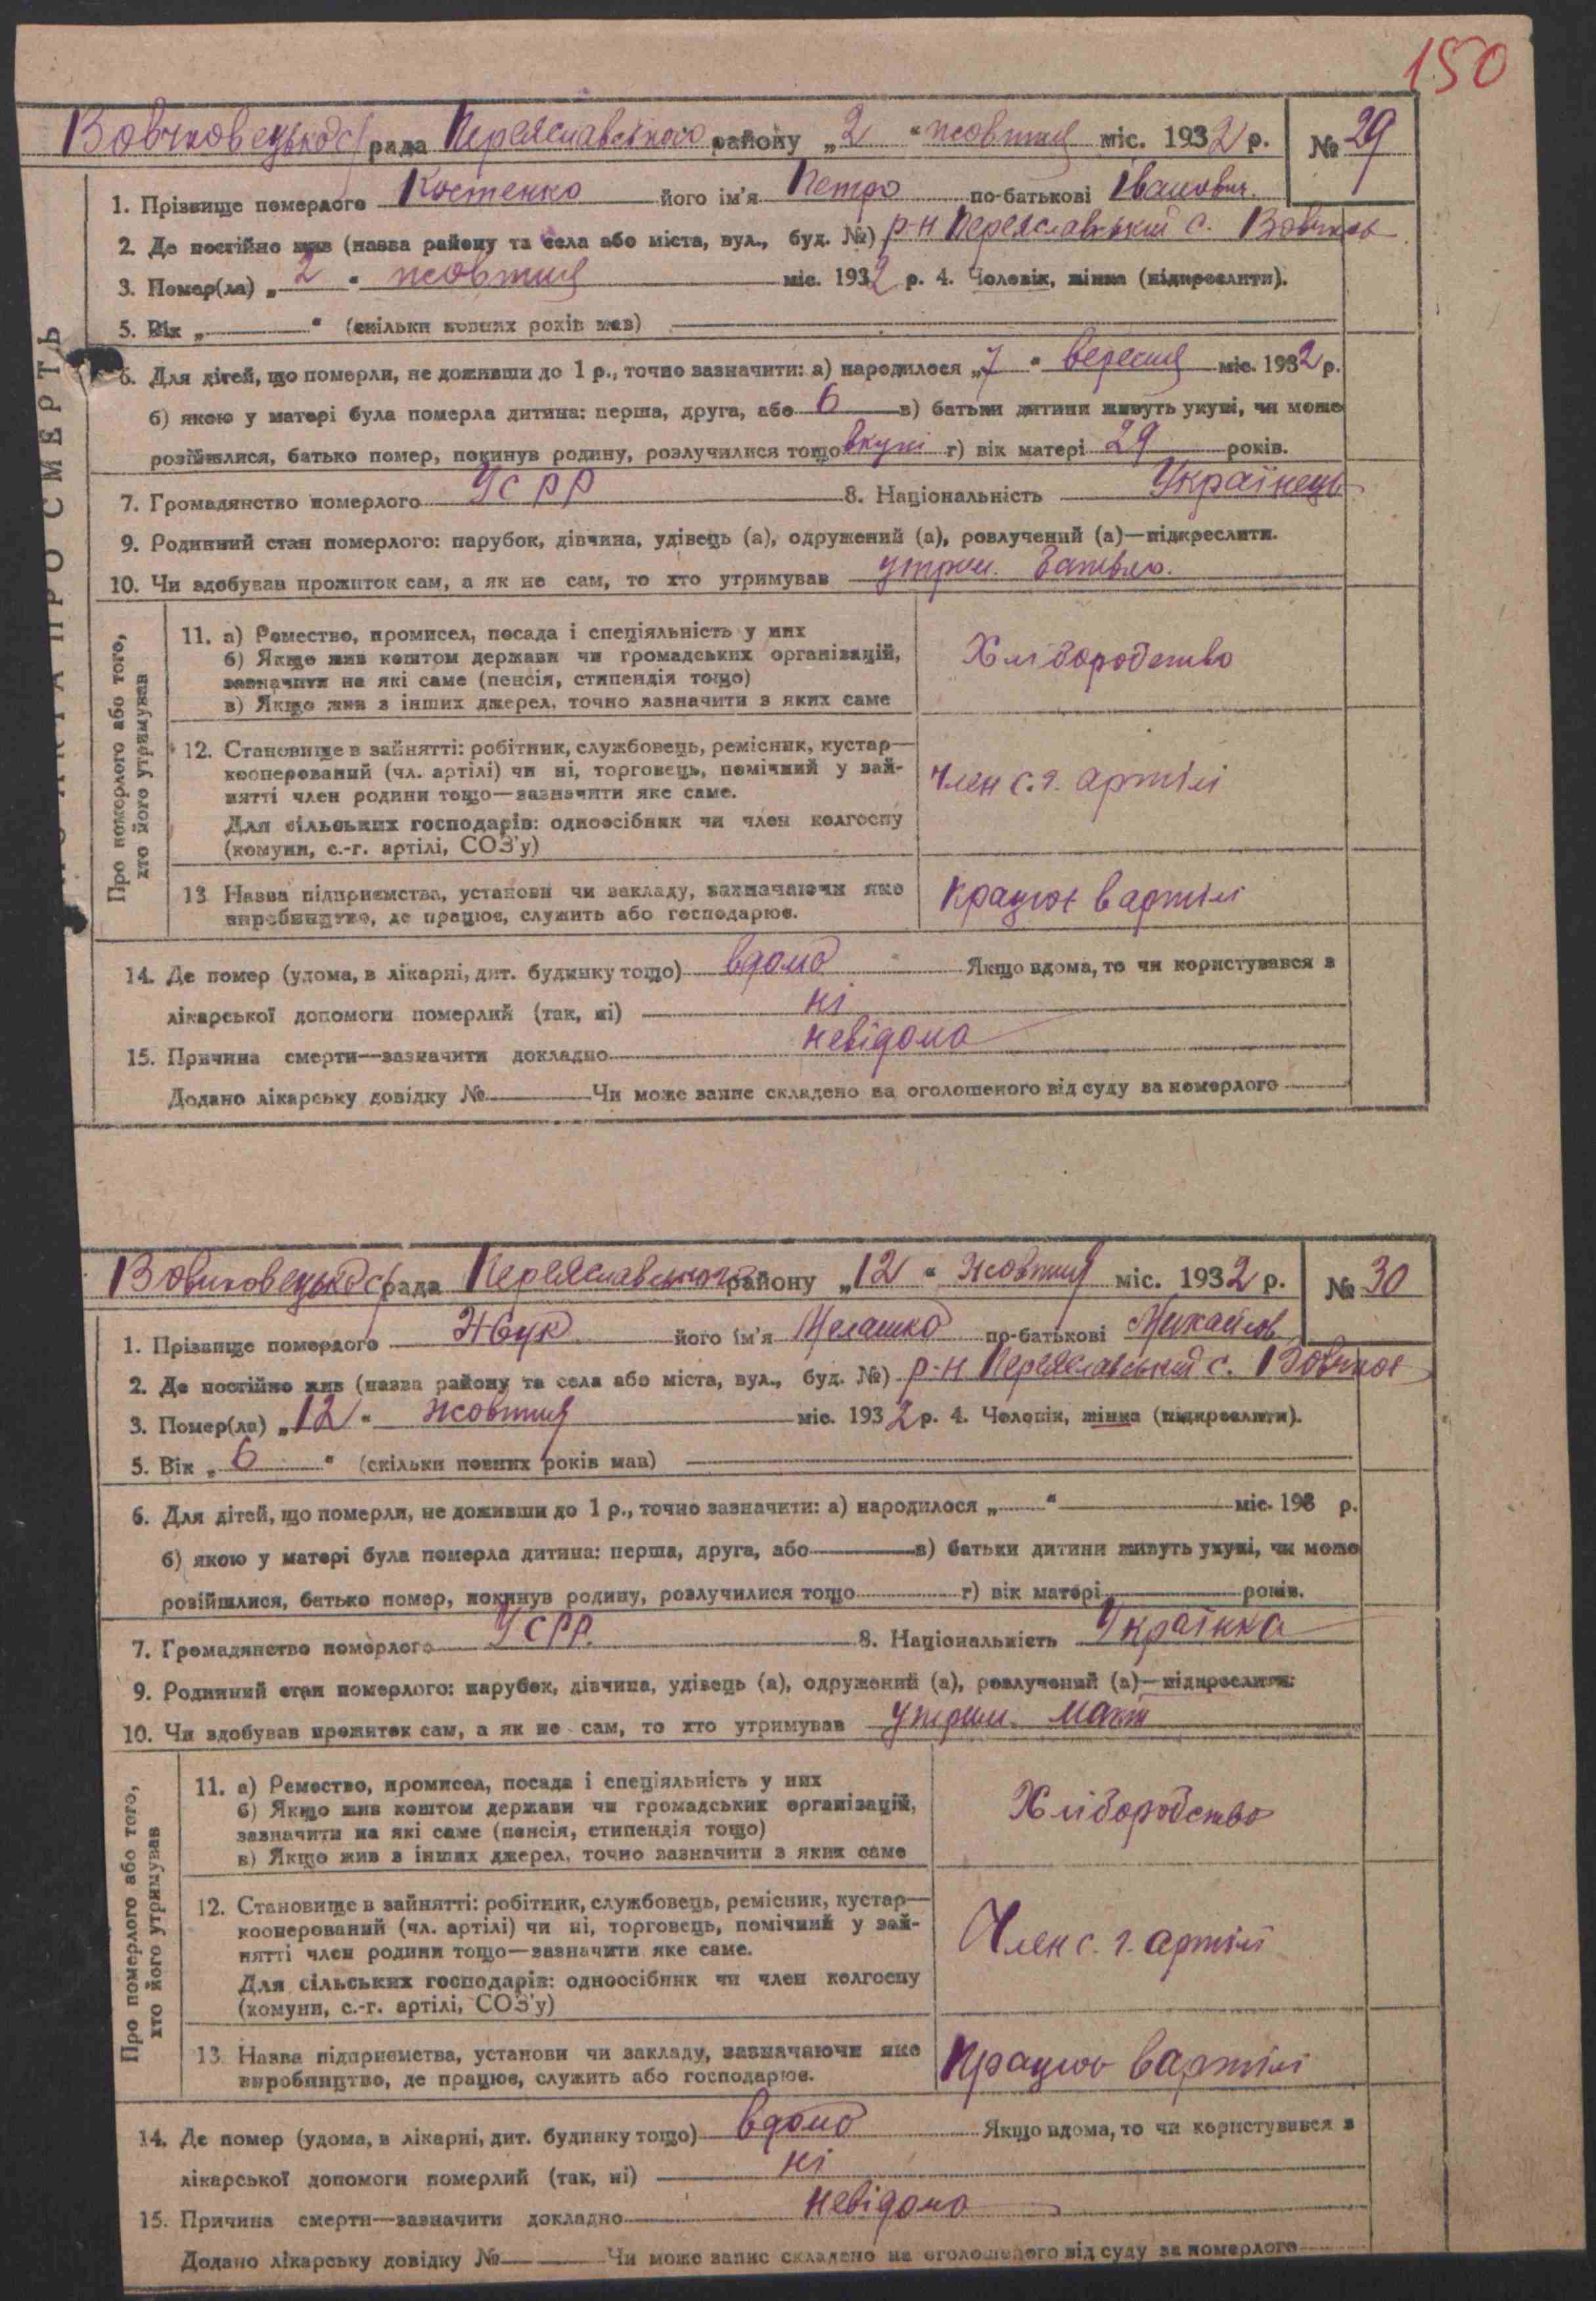 150
Вовчковецької рада Переяславського району „2“ жовтня міс. 1932 р. № 29
1. Прізвище померлого Костенко його ім'я Петро по-батькові Іванович
2. Де постійно жив (назва району та села або міста, вул., буд. №) р-н Переяславський с. Вовчков
3. Помер(ла) „2“ жовтня міс. 1932 р. 4. Чоловік, жінка (підкреслити).
5. Вік „ “ (скільки повних років мав)
6. Для дітей, що померли, не доживши до 1 р., точно зазначити: а) народилося „7“ вересня міс. 1932 р.
б) якою у матері була померла дитина: перша, друга, або 6 в) батьки дитини живуть укупі, чи може
розійшлися, батько помер, покинув родину, розлучилися тощо вкупі г) вік матері 29 років.
7. Громадянство померлого УСРР 8. Національність Українець
9. Родинний стан померлого: парубок, дівчина, удівець (а), одружений (а), розлучений (а)—підкреслити.
10. Чи здобував прожиток сам, а як не сам, то хто утримував утрим. батько.
ПРО СМЕРТЬ
Про померлого або того,
хто його утримував
11. а) Ремество, промисел, посада і спеціяльність у них
б) Якщо жив коштом держави чи громадських організацій,
зазначити на які саме (пенсія, стипендія тощо)
в) Якщо жив з інших джерел, точно зазначити з яких саме
Хліборобство
12. Становище в зайнятті: робітник, службовець, ремісник, кустар—
кооперований (чл. артілі) чи ні, торговець, помічний у зай-
нятті член родини тощо—зазначити яке саме.
Для сільських господарів: одноосібник чи член колгоспу
(комуни, с.-г. артілі, СОЗ'у)
Член с.г. артілі
13. Назва підприємства, установи чи закладу, зазначаючи яке
виробництво, де працює, служить або господарює.
Працює в артілі
14. Де помер (удома, в лікарні, дит. будинку тощо) вдома Якщо вдома, то чи користувався з
лікарської допомоги померлий (так, ні) ні
15. Причина смерти—зазначити докладно невідома
Додано лікарську довідку № Чи може запис складено на оголошеного від суду за померлого
Вовчковецької рада Переяславського району „12“ жовтня міс. 1932 р. № 30
1. Прізвище померлого Жук його ім'я Мелашка по-батькові Михайлов
2. Де постійно жив (назва району та села або міста, вул., буд. №) р-н Переяславський с. Вовчков
3. Помер(ла) „12“ жовтня міс. 1932 р. 4. Чоловік, жінка (підкреслити).
5. Вік „6“ (скільки повних років мав)
6. Для дітей, що померли, не доживши до 1 р., точно зазначити: а) народилося „ “ міс. 193 р.
б) якою у матері була померла дитина: перша, друга, або в) батьки дитини живуть укупі, чи може
розійшлися, батько помер, покинув родину, розлучилися тощо г) вік матері років.
7. Громадянство померлого УСРР. 8. Національність Українка
9. Родинний стан померлого: парубок, дівчина, удівець (а), одружений (а), розлучений (а)—підкреслити.
10. Чи здобував прожиток сам, а як не сам, то хто утримував утрим. мати
Про померлого або того,
хто його утримував
11. а) Ремество, промисел, посада і спеціяльність у них
б) Якщо жив коштом держави чи громадських організацій,
зазначити на які саме (пенсія, стипендія тощо)
в) Якщо жив з інших джерел, точно зазначити з яких саме
Хліборобство
12. Становище в зайнятті: робітник, службовець, ремісник, кустар—
кооперований (чл. артілі) чи ні, торговець, помічний у зай-
нятті член родини тощо—зазначити яке саме.
Для сільських господарів: одноосібник чи член колгоспу
(комуни, с.-г. артілі, СОЗ'у)
Член с. г. артілі
13. Назва підприємства, установи чи закладу, зазначаючи яке
виробництво, де працює, служить або господарює.
Працює в артілі
14. Де помер (удома, в лікарні, дит. будинку тощо) вдома Якщо вдома, то чи користувався з
лікарської допомоги померлий (так, ні) ні
15. Причина смерти—зазначити докладно невідома
Додано лікарську довідку № Чи може запис складено на оголошеного від суду за померлого